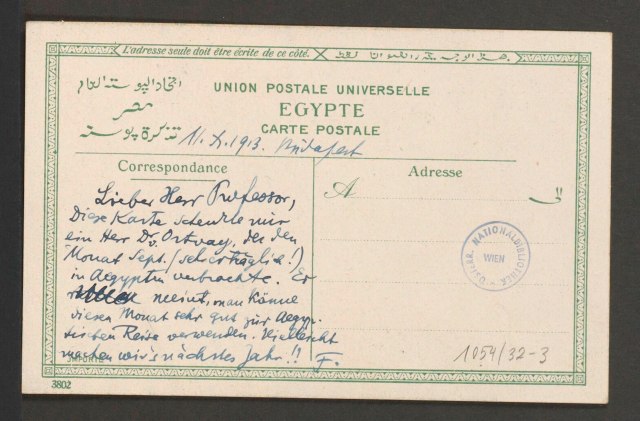 L'adresse seule doit être écrite de ce côté.
UNION POSTALE UNIVERSELLE
EGYPTE
CARTE POSTALE
اتحاد البوسته العام
مصر
تذكرة بوسته
11.X.1913. Budapest
Correspondance
Adresse
A
الى
Lieber Herr Professor,
Diese Karte schenkte mir
ein Herr Dr. Ortvay, der den
Monat Sept. (sehr erträglich!)
in Aegypten verbrachte. Er
meint, man könne
diesen Monat sehr gut zur Aegyp-
tischen Reise verwenden. Vielleicht
machen wir's nächstes Jahr!! F.
NATIONALBIBLIOTHEK
WIEN
1054/32-3
3802